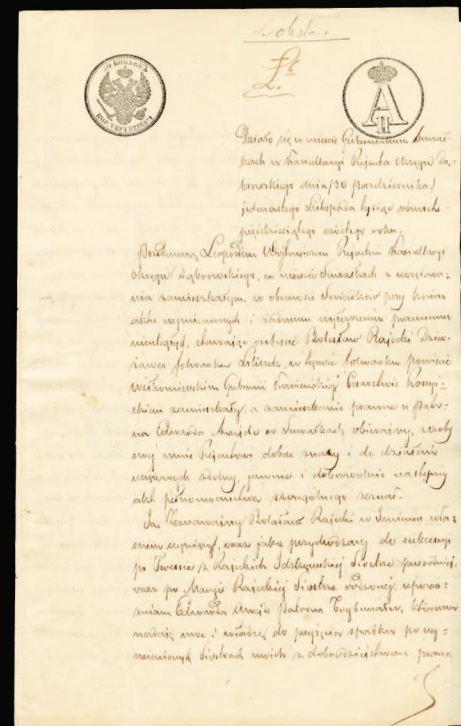 30 КОПѢЕКЪ
KOP. TRZYDZIEŚCI
A
II
Działo się w mieście Gubernialnem Suwał-
kach w Kancellaryi Rejenta Okręgu Dą-
browskiego dnia /30 pazdziernika/
jedenastego Listopada tysiąc ośmset
pięćdziesiątego szóstego roku.
Przedemną Leopoldem Wójtowiczem Rejentem Kancellaryi
Okręgu Dąbrowskiego, w mieście Suwałkach z urzędowa-
nia zamieszkałym, w obecności Świadków przy końcu
aktu wymienionych i żadnemu wyłączeniu prawnemu
nieuległych, stawający osobiście Bolesław Rajecki Dzier-
żawca folwarku w tymże folwarku powiecie
Wiłkomierskim Gubernii Kowieńskiej Cesarstwie Rossyj-
skiem zamieszkały, a zamieszkanie prawne u Patro-
na Edwarda w Suwałkach obierający, z osoby
swej mnie Rejentowi dobrze znany i do działań
urzędowych zdolny, jawnie i dobrowolnie następny
akt pełnomocnictwa szczególnego zeznał.
Ja Niżej Bolesław Rajecki w Imieniu wła-
snem czyniący, oraz jako przychodzący do sukcessyi
po z Rajeckich Siostrze
oraz po Maryi Rajeckiej Siostrze rodzonej, upowa-
żniam Edwarda Patrona Trybunału, któremu
nadaję moc i władzę do przyjęcia spadków po wy-
mienionych Siostrach moich z dobrodziejstwem prawa